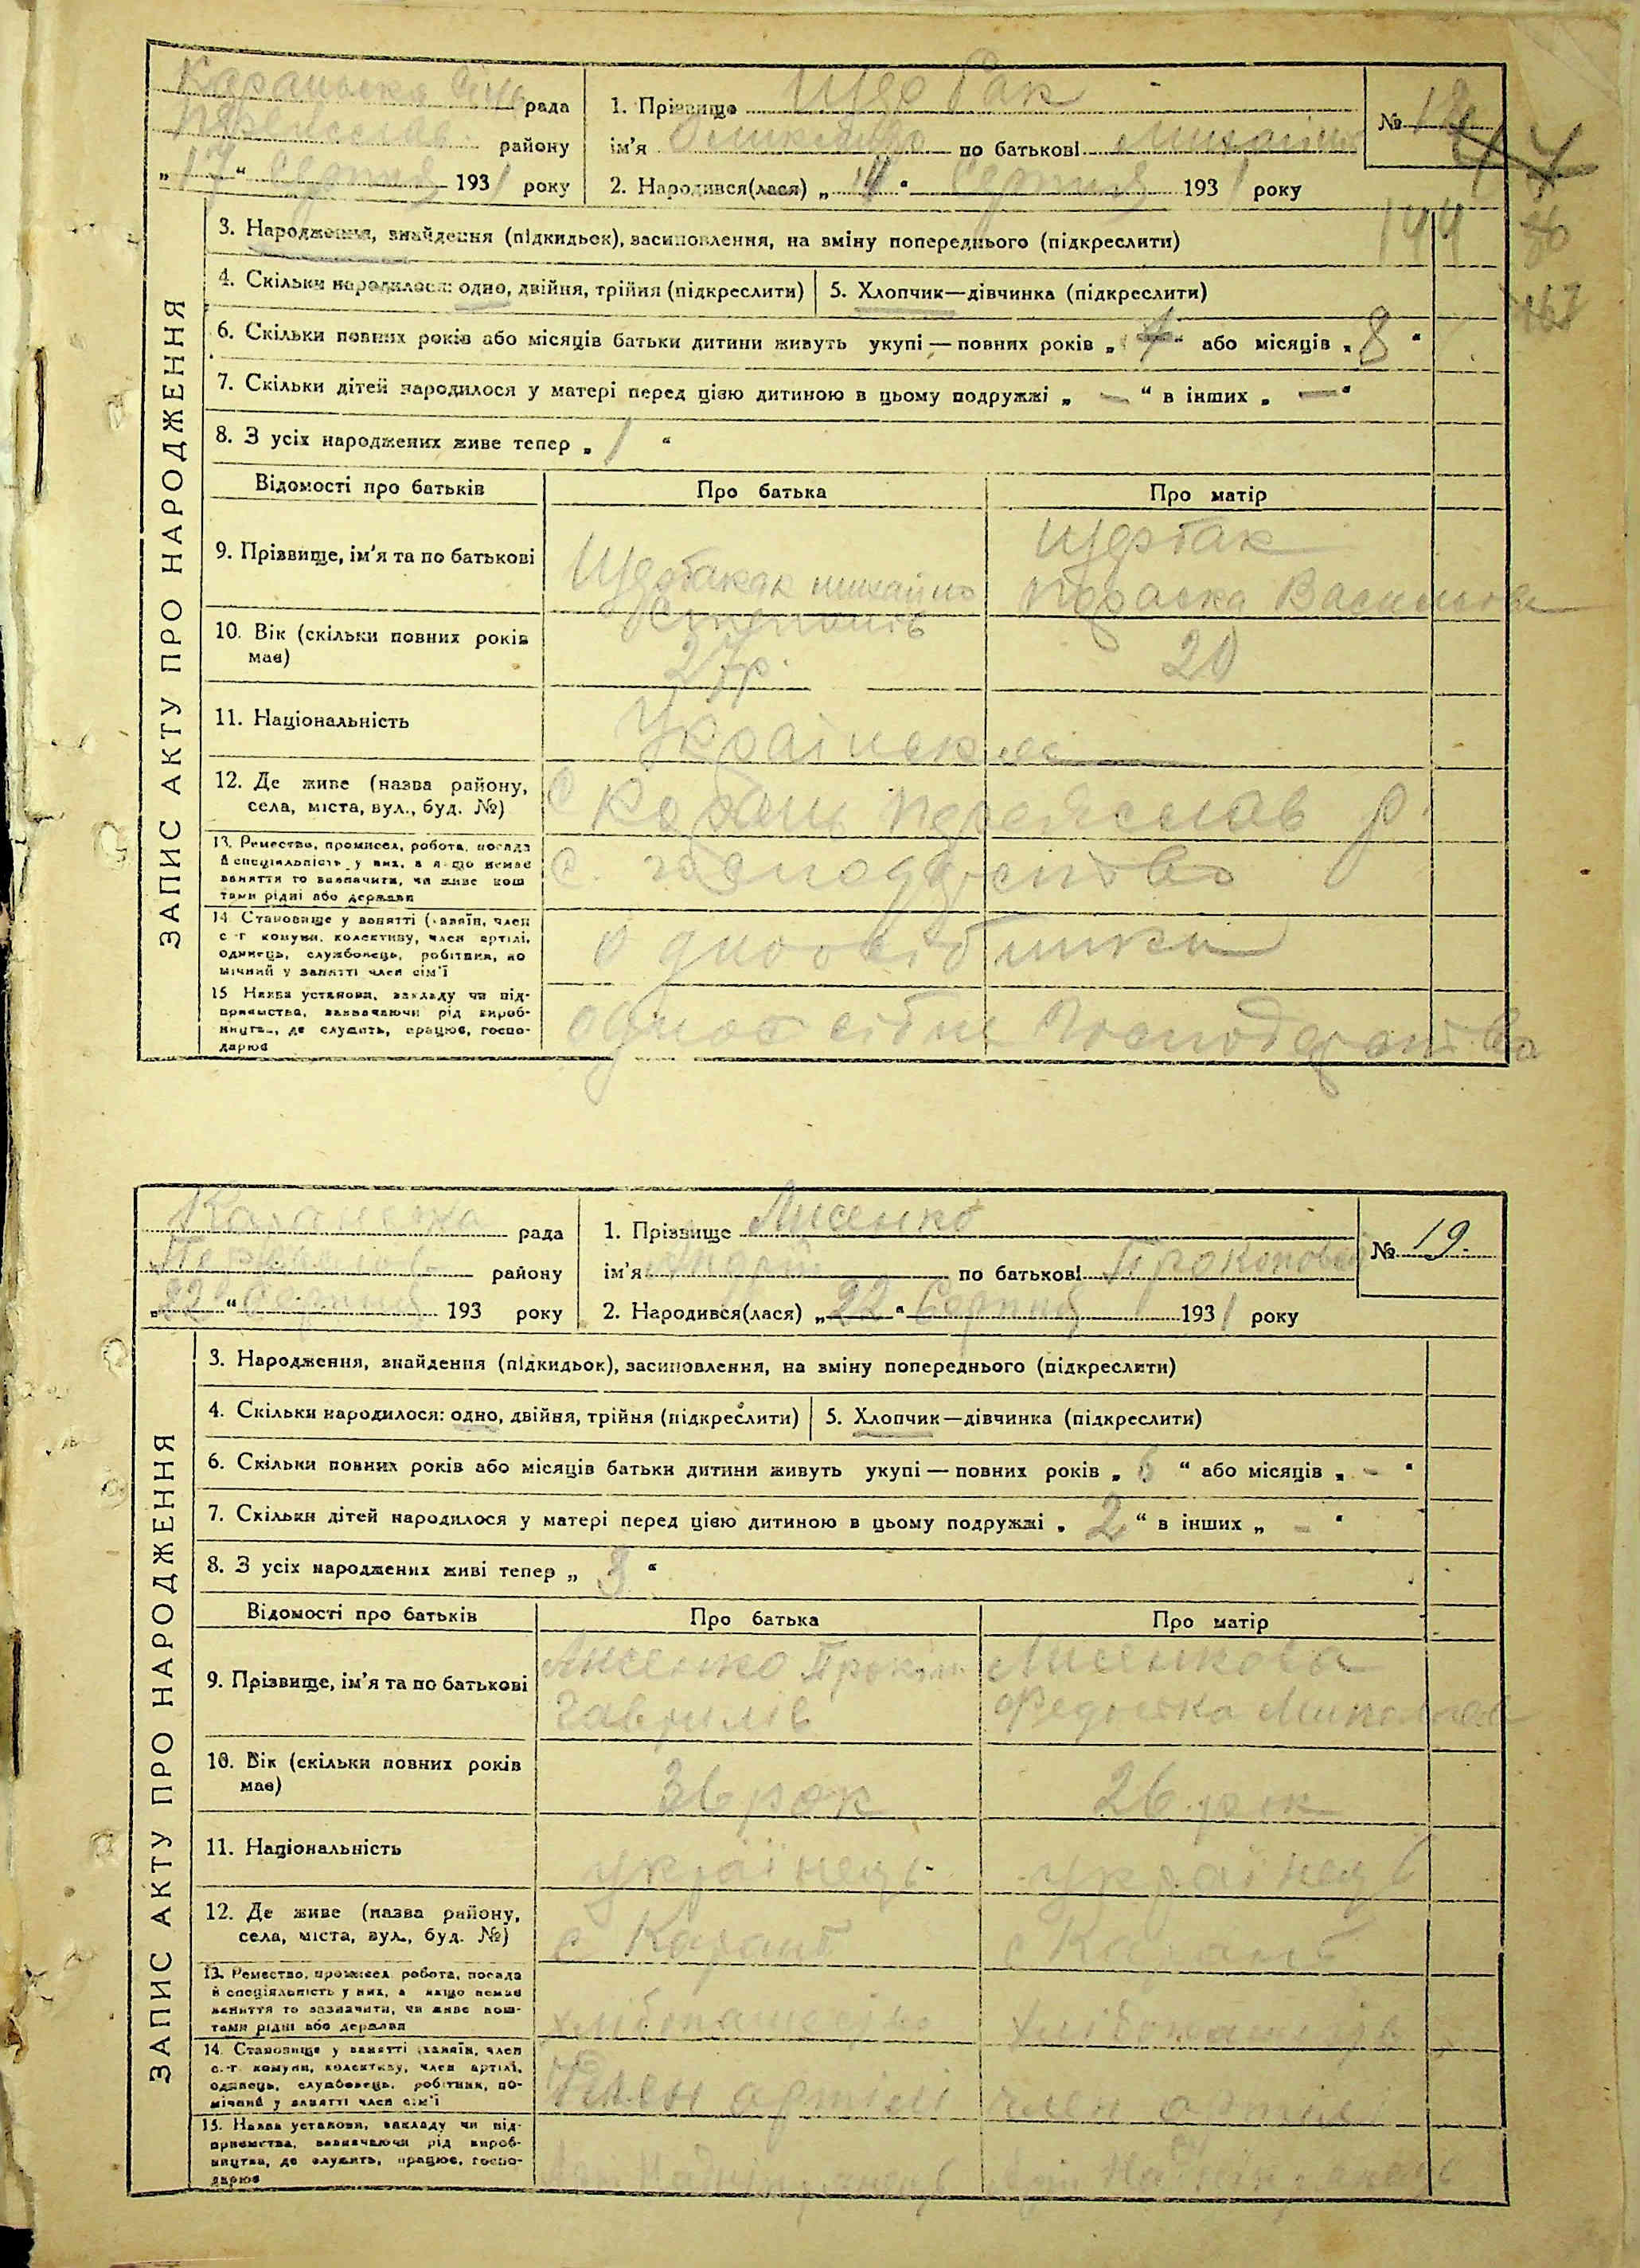 Караньска сіль рада
Переяслав. району
„17“ Серпня 1931 року
1. Прізвище Щербак
ім'я по батькові Михайлів
2. Народився(лася) „ “ Серпня 1931 року
№ 18
144
ЗАПИС АКТУ ПРО НАРОДЖЕННЯ
3. Народження, знайдення (підкидьок), засиновлення, на зміну попереднього (підкреслити)
4. Скільки народилося: одно, двійня, трійня (підкреслити)
5. Хлопчик—дівчинка (підкреслити)
6. Скільки повних років або місяців батьки дитини живуть укупі — повних років „ “ або місяців „8“
7. Скільки дітей народилося у матері перед цією дитиною в цьому подружжі „—“ в інших „—“
8. З усіх народжених живе тепер „1“
Відомості про батьків
Про батька
Про матір
9. Прізвище, ім'я та по батькові
Михайло
Степанів
Щербак
Параска Василівна
10. Вік (скільки повних років має)
27 р.
20
11. Національність
Українська
12. Де живе (назва району, села, міста, вул., буд. №)
С Карань Переяслав р.
13. Ремество, промисел, робота, посада й спеціяльність у них, а якщо немає заняття то зазначити, чи живе коштами рідні або держави
С. господарство
14. Становище у занятті (хазяїн, член с.-г. комуни, колективу, член артілі, одинець, службовець, робітник, помічний у занятті член сім'ї
одноосібники
15. Назва установи, закладу чи підприємства, зазначаючи рід виробництва, де служить, працює, господарює
одноосібне господарства
Караньська рада
Переяслав. району
„22“ Серпня 193 року
1. Прізвище Лисенко
ім'я Андрій по батькові Прокопович
2. Народився(лася) „22“ Серпня 1931 року
№ 19.
ЗАПИС АКТУ ПРО НАРОДЖЕННЯ
3. Народження, знайдення (підкидьок), засиновлення, на зміну попереднього (підкреслити)
4. Скільки народилося: одно, двійня, трійня (підкреслити)
5. Хлопчик—дівчинка (підкреслити)
6. Скільки повних років або місяців батьки дитини живуть укупі — повних років „6“ або місяців „-“
7. Скільки дітей народилося у матері перед цією дитиною в цьому подружжі „2“ в інших „-“
8. З усіх народжених живі тепер „3“
Відомості про батьків
Про батька
Про матір
9. Прізвище, ім'я та по батькові
Лисенко Прокіп
Гаврилів
Лисенкова
Федоська
10. Вік (скільки повних років має)
36 рок
26 рок
11. Національність
українець
українець
12. Де живе (назва району, села, міста, вул., буд. №)
с Карань
с Карань
13. Ремество, промисел, робота, посада й спеціяльність у них, а якщо немає заняття то зазначити, чи живе коштами рідні або держави
хлібопашець
14. Становище у занятті (хазяїн, член с.-г. комуни, колективу, член артілі, одинець, службовець, робітник, помічний у занятті член сім'ї
Член артілі
член артілі
15. Назва установи, закладу чи підприємства, зазначаючи рід виробництва, де служить, працює, господарює